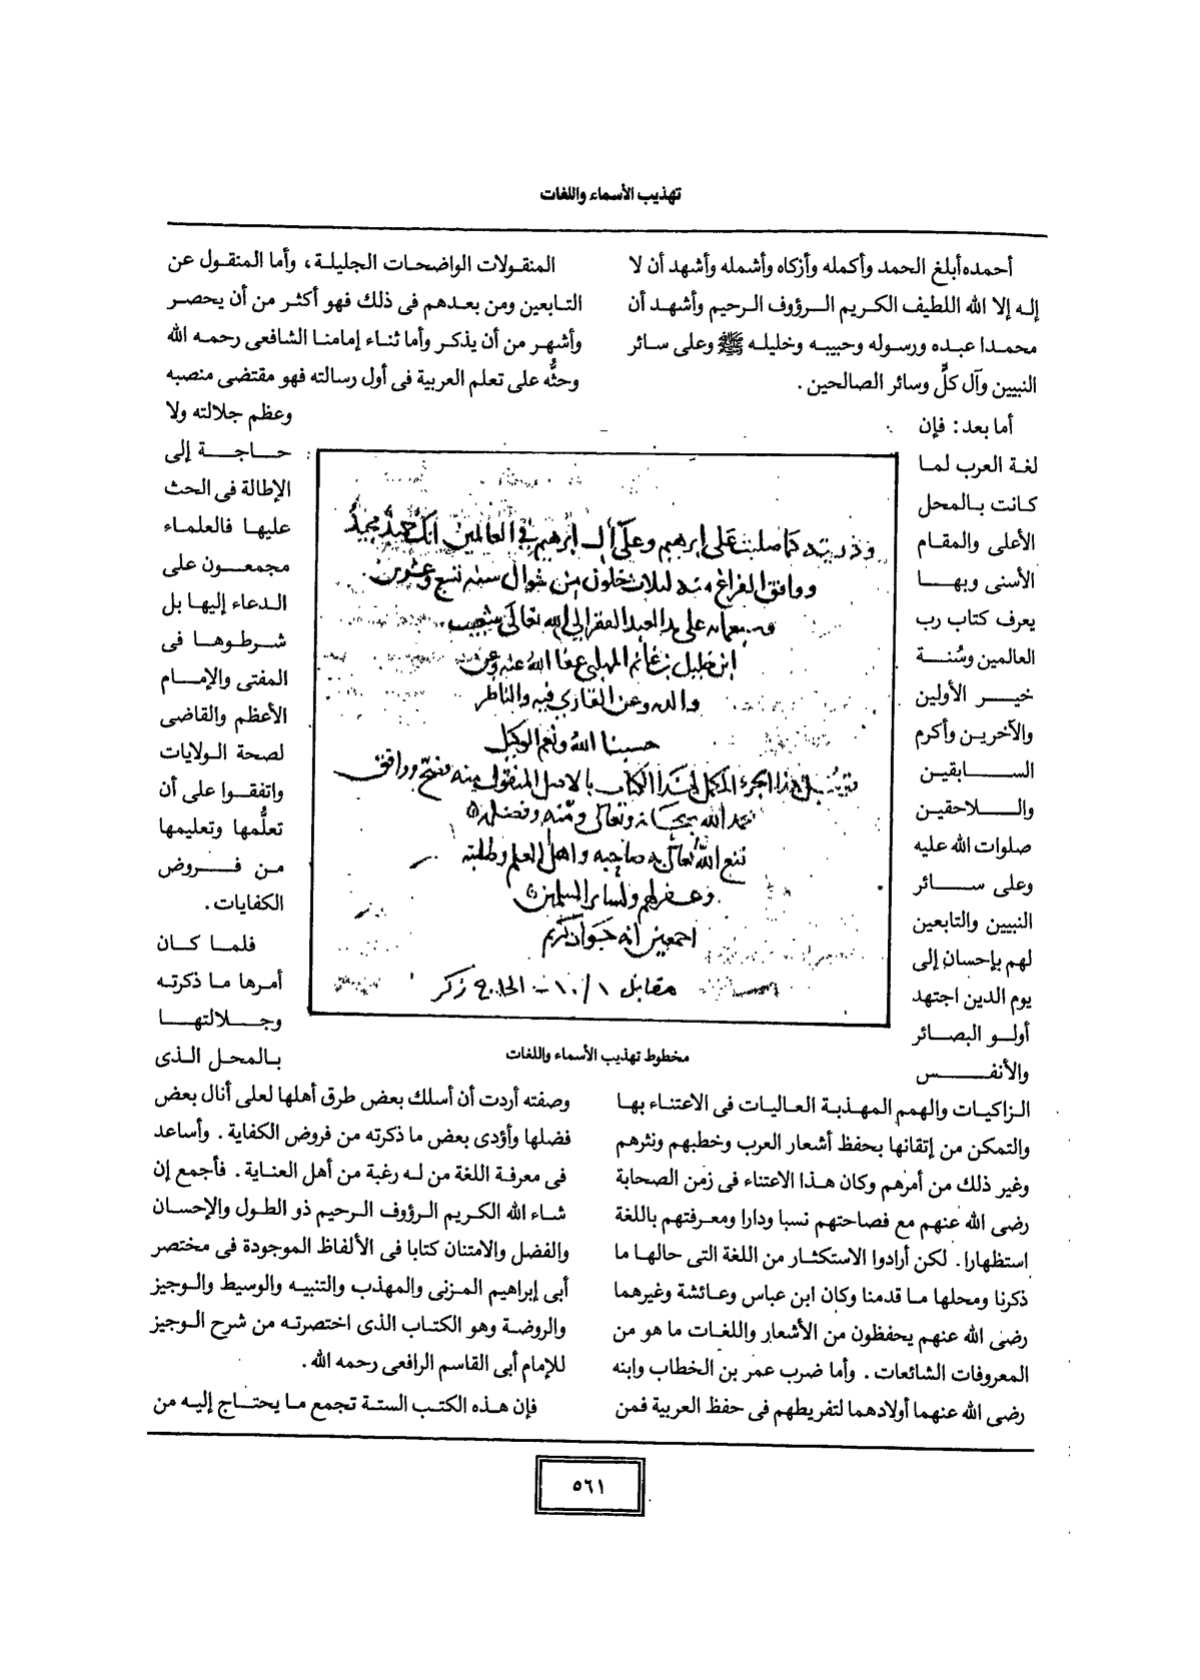 تهذيب الأسماء واللغات
أحمده أبلغ الحمد وأكمله وأزكاه وأشمله وأشهد أن لا
إله إلا الله اللطيف الكريم الرؤوف الرحيم وأشهد أن
محمدا عبده ورسوله وحبيبه وخليله ﷺ وعلى سائر
النبيين وآل كلٍّ وسائر الصالحين .
أما بعد : فإن
لغة العرب لما
كانت بالمحل
الأعلى والمقام
الأسنى وبها
يعرف كتاب رب
العالمين وسُنة
خير الأولين
والآخرين وأكرم
السابقين
واللاحقين
صلوات الله عليه
وعلى سائر
النبيين والتابعين
لهم بإحسان إلى
يوم الدين اجتهد
أولو البصائر
والأنفس
الزاكيات والهمم المهذبة العاليات فى الاعتناء بها
والتمكن من إتقانها بحفظ أشعار العرب وخطبهم ونثرهم
وغير ذلك من أمرهم وكان هذا الاعتناء فى زمن الصحابة
رضى الله عنهم مع فصاحتهم نسبا ودارا ومعرفتهم باللغة
استظهارا . لكن أرادوا الاستكثار من اللغة التى حالها ما
ذكرنا ومحلها ما قدمنا وكان ابن عباس وعائشة وغيرهما
رضى الله عنهم يحفظون من الأشعار واللغات ما هو من
المعروفات الشائعات . وأما ضرب عمر بن الخطاب وابنه
رضى الله عنهما أولادهما لتفريطهم فى حفظ العربية فمن
المنقولات الواضحات الجليلة ، وأما المنقول عن
التابعين ومن بعدهم فى ذلك فهو أكثر من أن يحصر
وأشهر من أن يذكر وأما ثناء إمامنا الشافعى رحمه الله
وحثُّه على تعلم العربية فى أول رسالته فهو مقتضى منصبه
وعظم جلالته ولا
حاجة إلى
الإطالة فى الحث
عليها فالعلماء
مجمعون على
الدعاء إليها بل
شرطوها فى
المفتى والإمام
الأعظم والقاضى
لصحة الولايات
واتفقوا على أن
تعلُّمها وتعليمها
من فروض
الكفايات .
فلما كان
أمرها ما ذكرته
وجلالتها
بالمحل الذى
وصفته أردت أن أسلك بعض طرق أهلها لعلى أنال بعض
فضلها وأؤدى بعض ما ذكرته من فروض الكفاية . وأساعد
فى معرفة اللغة من له رغبة من أهل العناية . فأجمع إن
شاء الله الكريم الرؤوف الرحيم ذو الطول والإحسان
والفضل والامتنان كتابا فى الألفاظ الموجودة فى مختصر
أبى إبراهيم المزنى والمهذب والتنبيه والوسيط والوجيز
والروضة وهو الكتاب الذى اختصرته من شرح الوجيز
للإمام أبى القاسم الرافعى رحمه الله .
فإن هذه الكتب الستة تجمع ما يحتاج إليه من
وذريته كما صليت على ابرهيم وعلى آل ابرهيم في العالمين انك حميد مجيد
ووافق الفراغ منه لثلاث خلون من شوال سنة تسع وعشرين
وسبعمائة على يد العبد الفقير الى الله تعالى شعيب
ابن خليل بن غانم عفا الله عنه وعن
والده وعن القاري فيه والناظر
حسبنا الله ونعم الوكيل
هذا الجزء الكتاب بالاصل المنقول منه فصح ووافق
بحمد الله سبحانه وتعالى ومنه وفضله
نفع الله تعالى به صاحبه واهل العلم وطلبته
وغفر لهم ولسائر المسلمين
اجمعين انه جواد كريم
مقابل
مخطوط تهذيب الأسماء واللغات
٥٦١